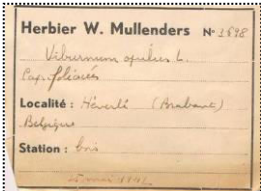 Herbier W. Mullenders N° 1898
Viburnum opulus L.
Caprifoliacées
Localité : Héverlé (Brabant)
Belgique
Station : bois
25 mai 1942